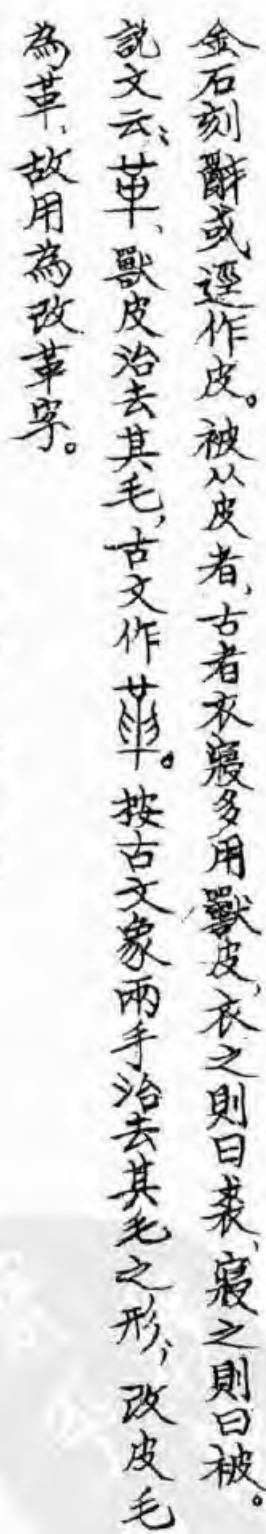 金石刻辭或逕作皮。被从皮者，古者衣寢多用獸皮，衣之則曰裘，寢之則曰被。
說文云：革，獸皮治去其毛，古文作𠦶。按古文象兩手治去其毛之形，改皮毛
為革，故用為改革字。